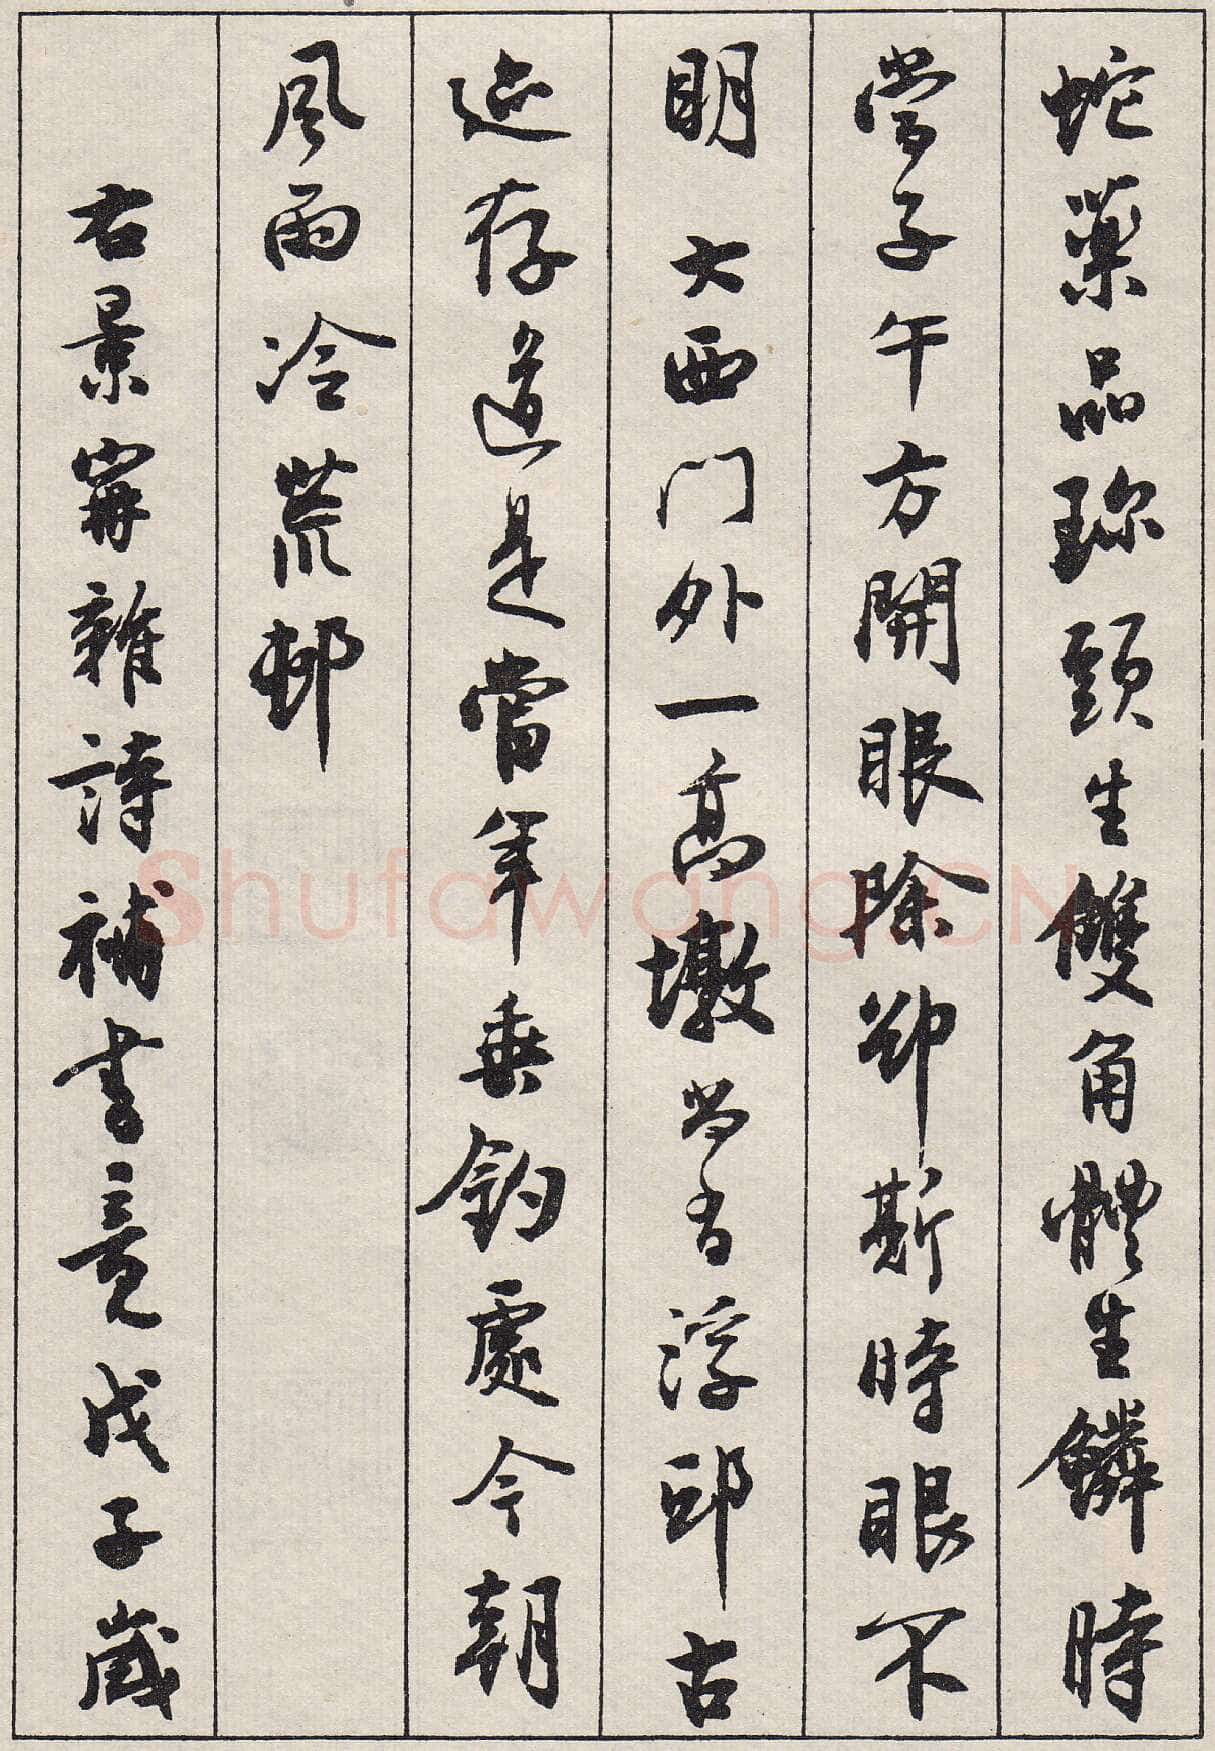 蛇藥品珎頭生雙角體生鱗時
當子午方開眼除卻斯時眼不
明 大西门外一高墩尚有浮邱古
迹存道是當年垂釣處今朝
風雨冷荒邨
右景甯雜詩補書竟戊子歲
Shufawang.CN